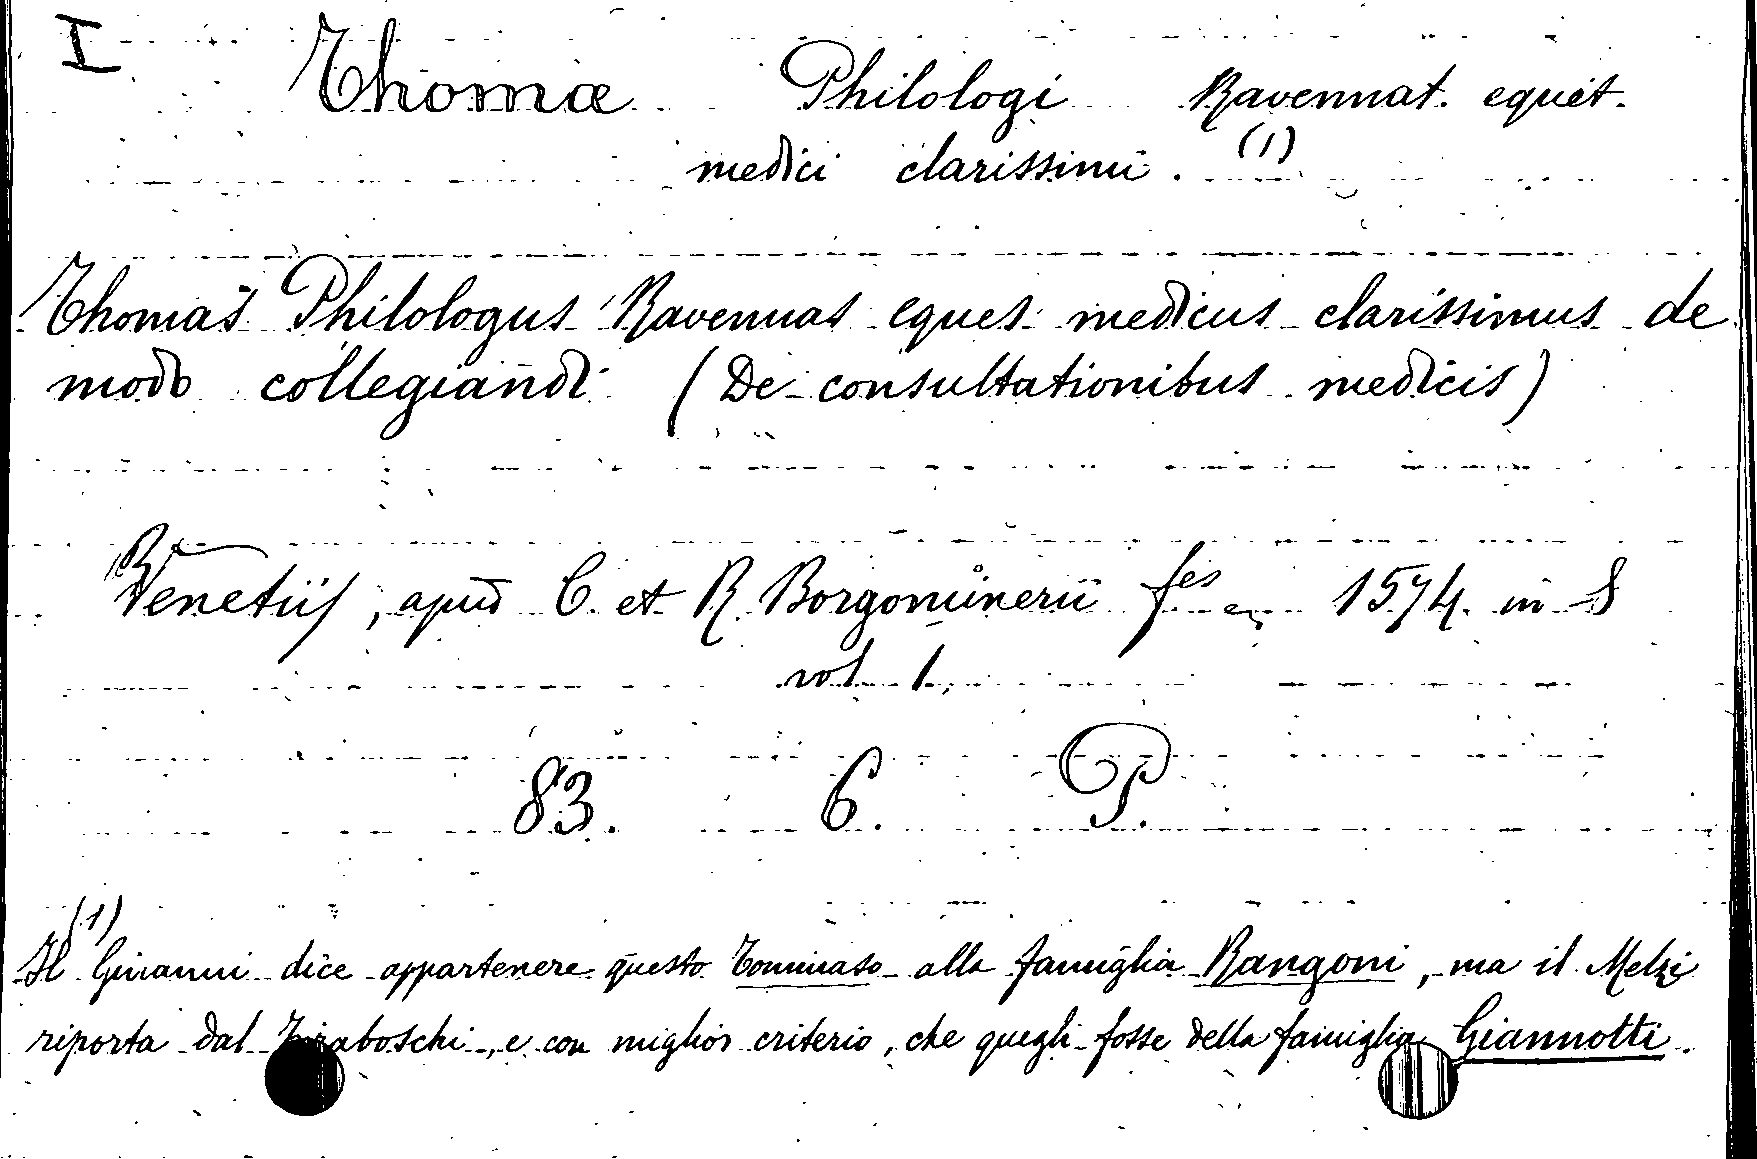 I
Thomæ Philologi Ravennat. equit.
medici clarissimi. (1)
Thomas Philologus Ravennas eques medicus clarissimus de
modo collegiandi (De consultationibus medicis)
Venetiis, apud C. et R. Borgominerii fes 1574. in 8
vol 1,
83. 6. P.
(1)
Il Ginanni dice appartenere questo Tommaso alla famiglia Rangoni, ma il Melzi
riporta dal Tiraboschi, e con miglior criterio, che quegli fosse della famiglia Giannotti.